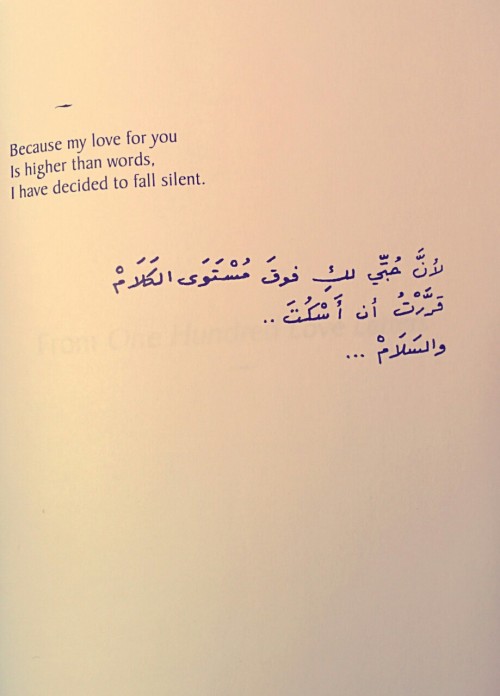 Because my love for you
Is higher than words,
I have decided to fall silent.
لأنَّ حُبِّي لكِ فوقَ مُسْتَوَى الكَلَامْ
قرَّرْتُ أن أَسْكُتَ ..
والسَلَامْ ...
From One Hundred Love